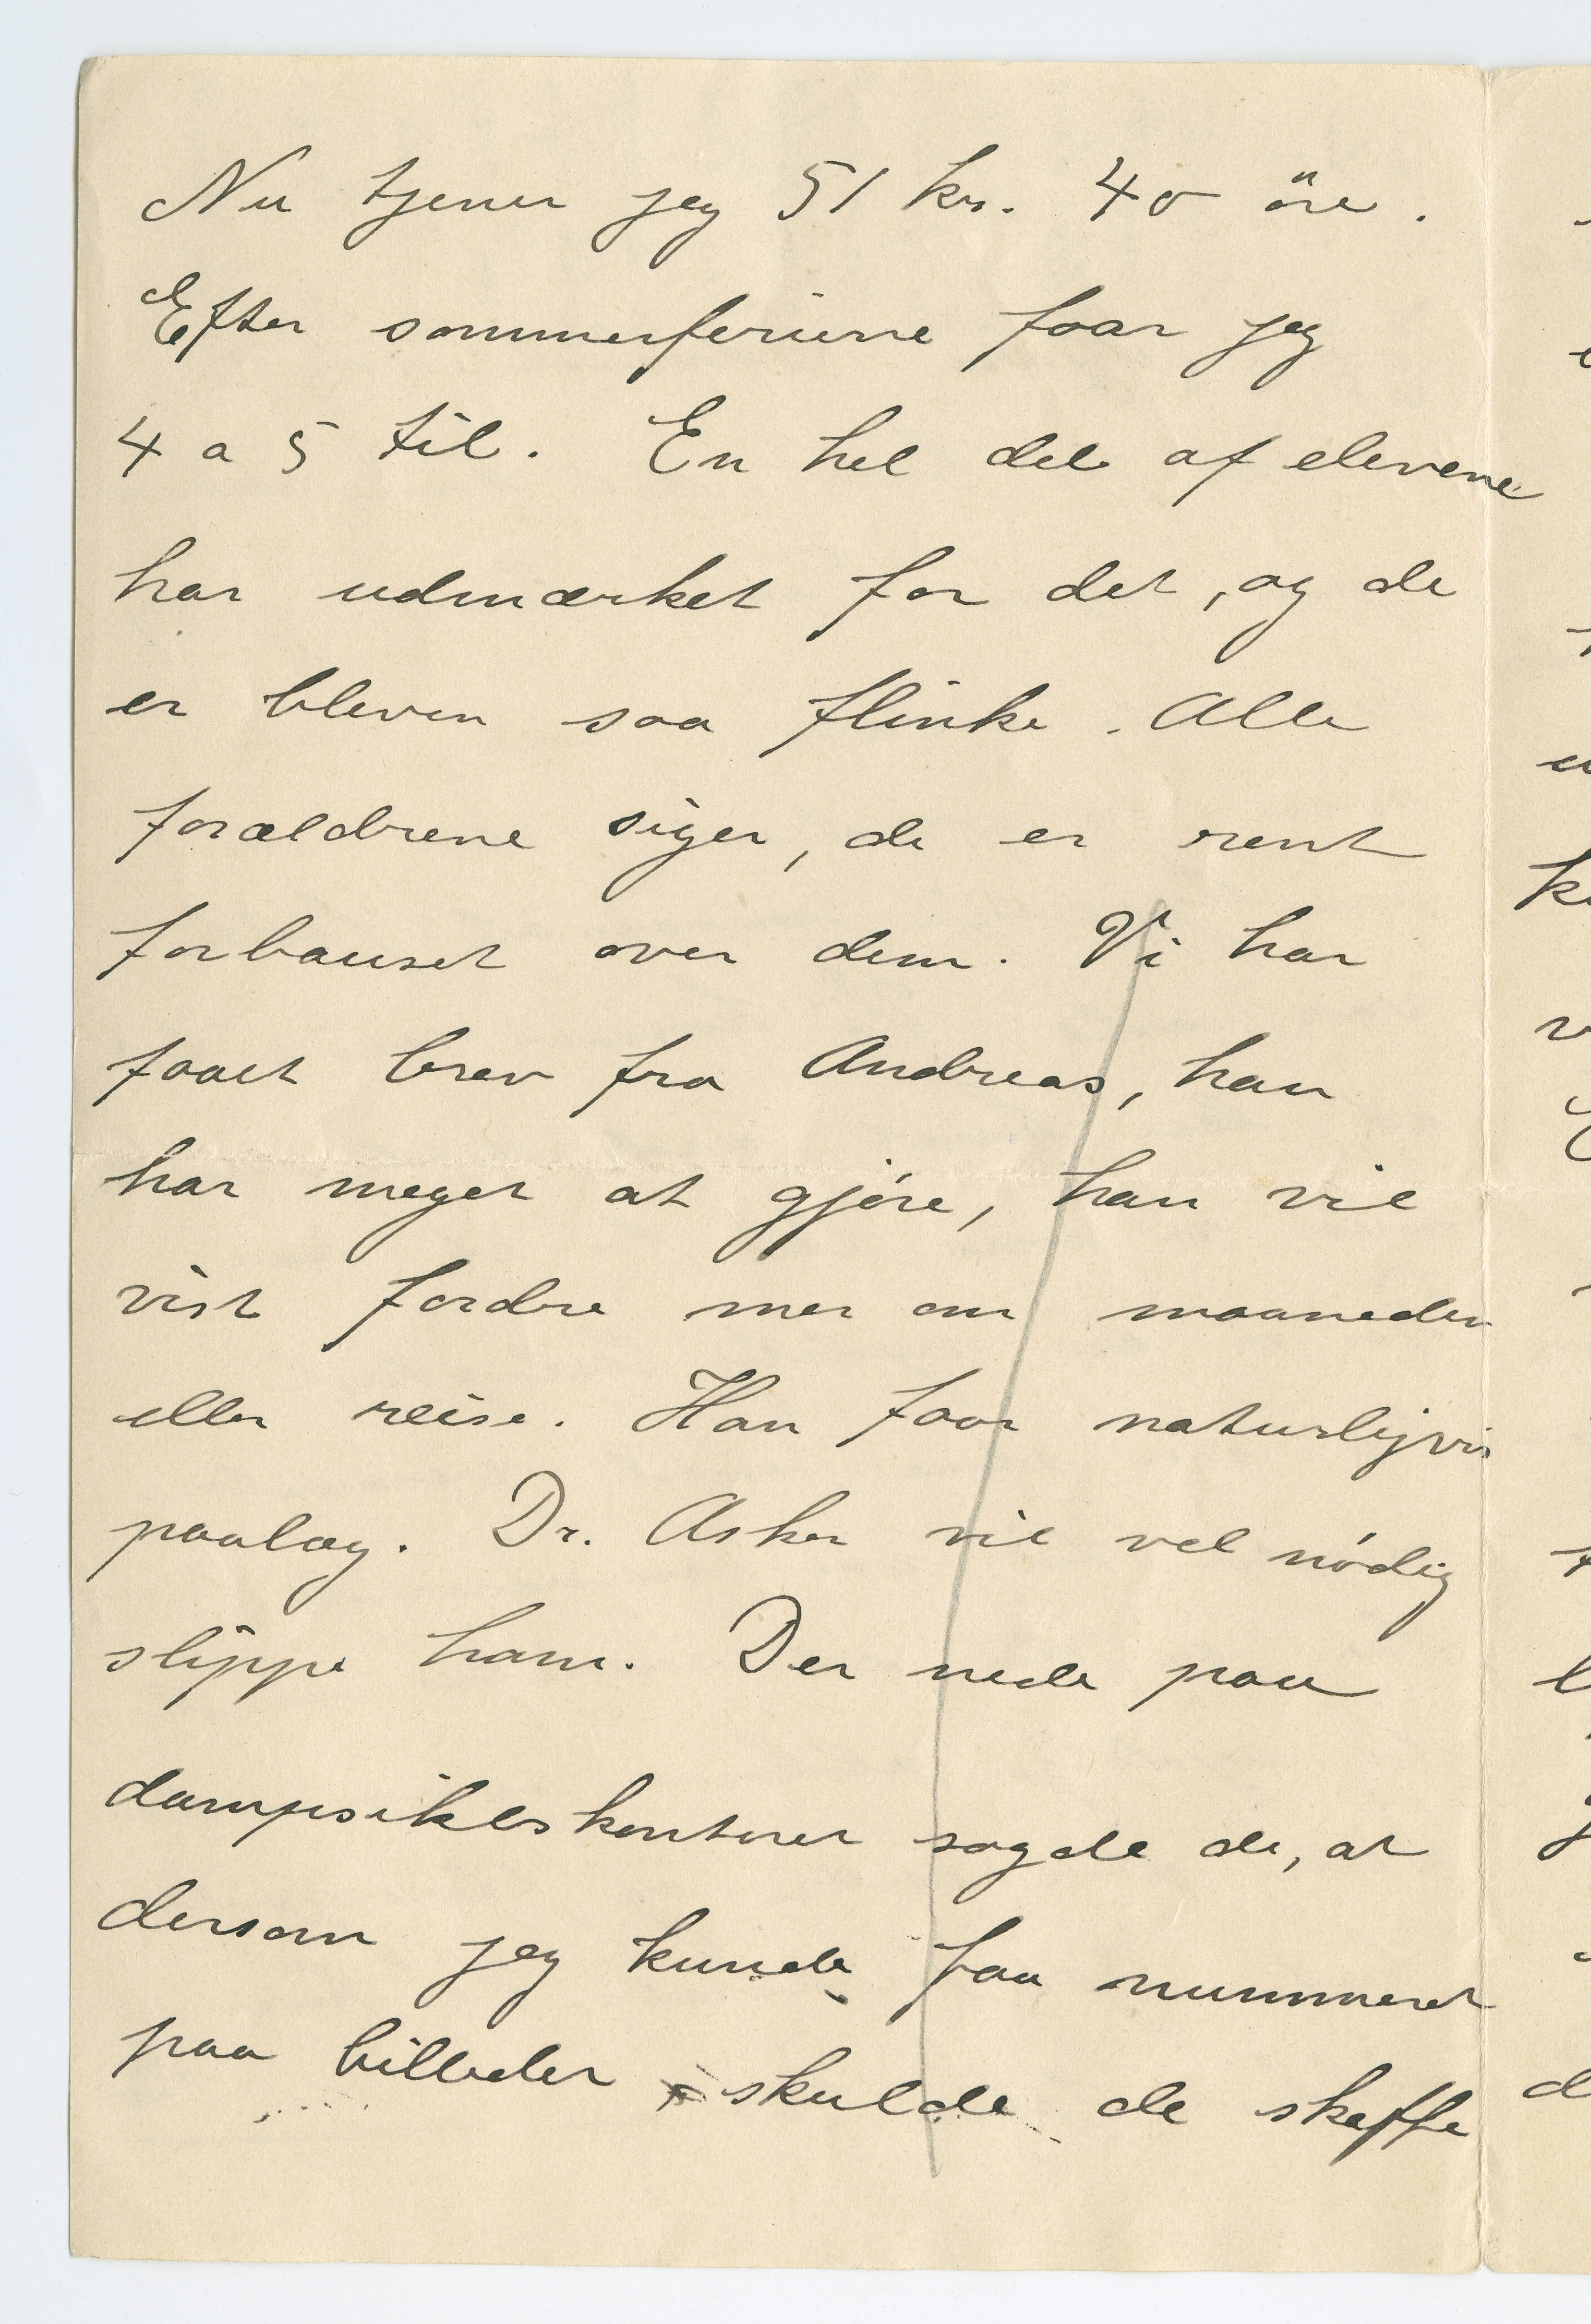 Nu tjener jeg 51 kr. 40 öre.
Efter sommerferierne faar jeg
4 a 5 til. En hel del af elevene
har udmærket for det, og de
er bleven saa flinke. Alle
forældrene siger, de er rent
forbauset over dem. Vi har
faaet brev fra Andreas, han
har meget at gjöre, han vil
vist fordre mer om maaneden
eller reise. Han faar naturligvis
paalæg. Dr. Asker vil vel nödig
slippe ham. Der nede paa
dampsikbskontoret sagde de, at
dersom jeg kunde faa nummeret
paa billeder skulde de skaffe